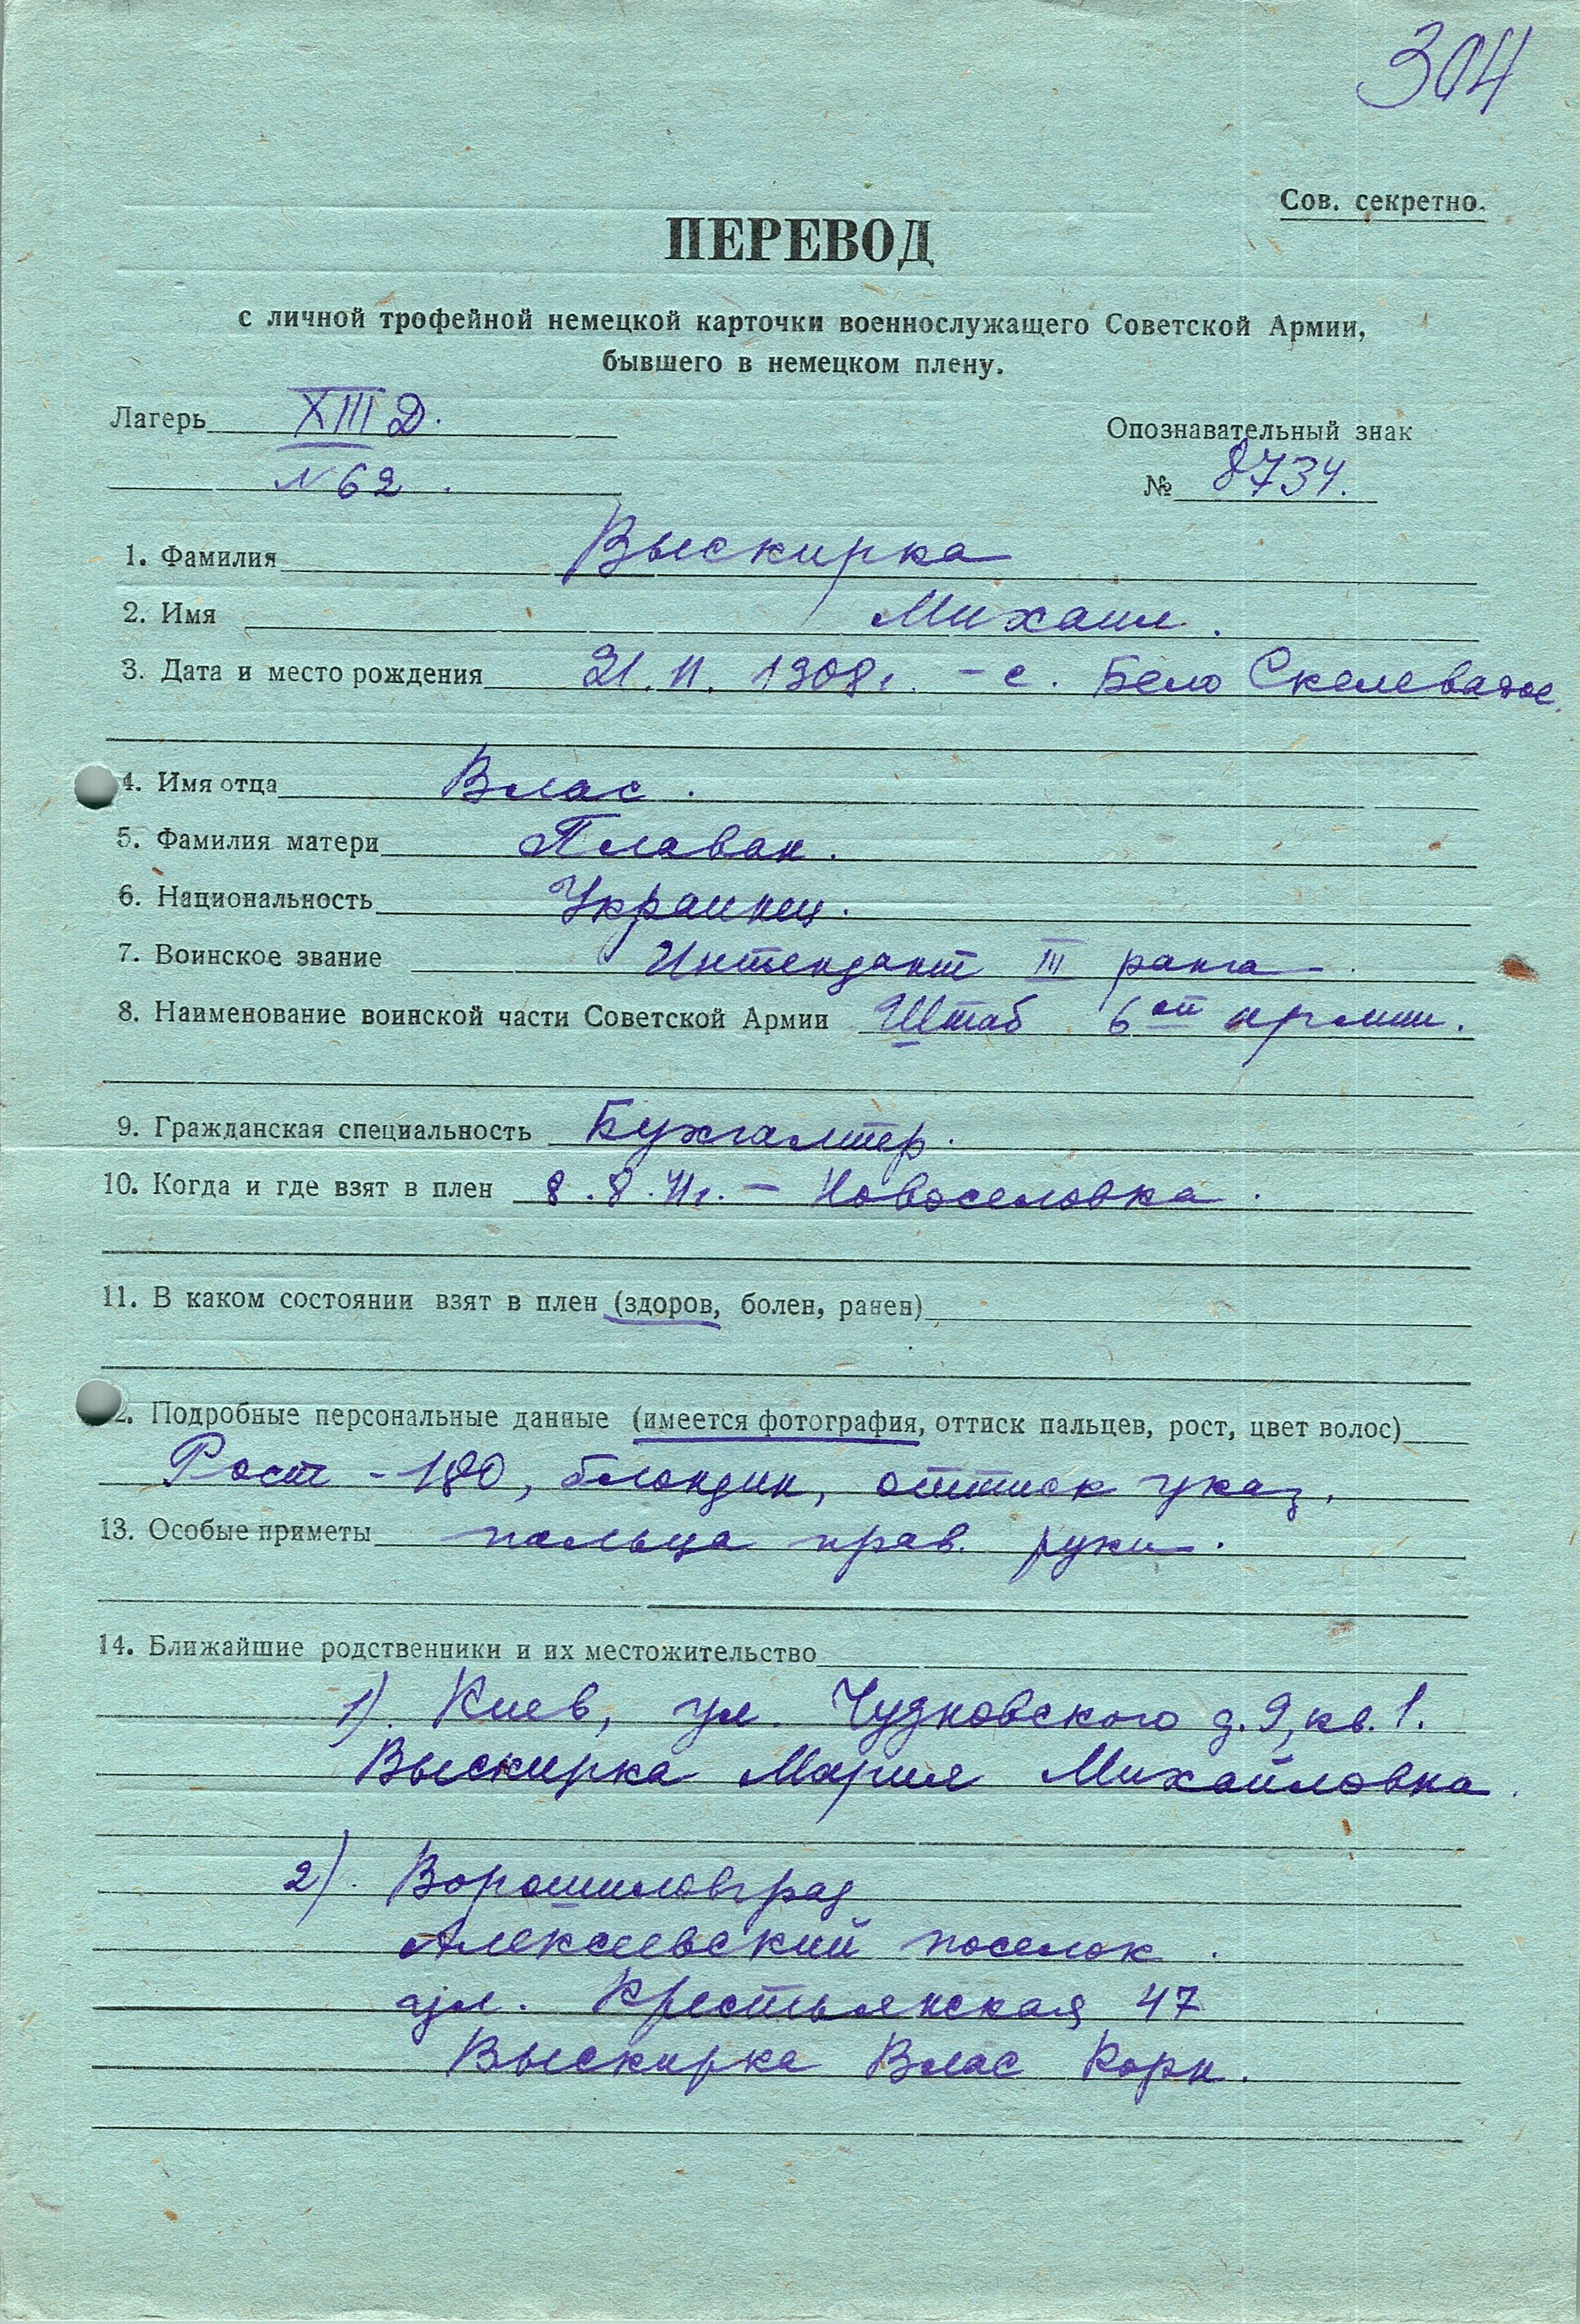 304
Сов. секретно.
ПЕРЕВОД
с личной трофейной немецкой карточки военнослужащего Советской Армии,
бывшего в немецком плену.
Лагерь XIII Д.
Опознавательный знак
N 62.
№ 8734.
1. Фамилия Выскирка
2. Имя Михаил.
3. Дата и место рождения 21. 11. 1908 г. – с. Бело Скелеватое.
4. Имя отца Влас.
5. Фамилия матери Плаван.
6. Национальность Украинец.
7. Воинское звание Интендант III ранга.
8. Наименование воинской части Советской Армии Штаб 6ой армии.
9. Гражданская специальность Бухгалтер.
10. Когда и где взят в плен 8.8.41г. – Новоселовка.
11. В каком состоянии взят в плен (здоров, болен, ранен)
12. Подробные персональные данные (имеется фотография, оттиск пальцев, рост, цвет волос)
Рост - 180, блондин, оттиск указ.
13. Особые приметы пальца прав. руки.
14. Ближайшие родственники и их местожительство
1). Киев, ул. Чудновского д. 9, кв. 1.
Выскирка Мария Михайловна.
2). Ворошиловград
Алексеевский поселок.
ул. Крестьянская 47
Выскирка Влас Корн.